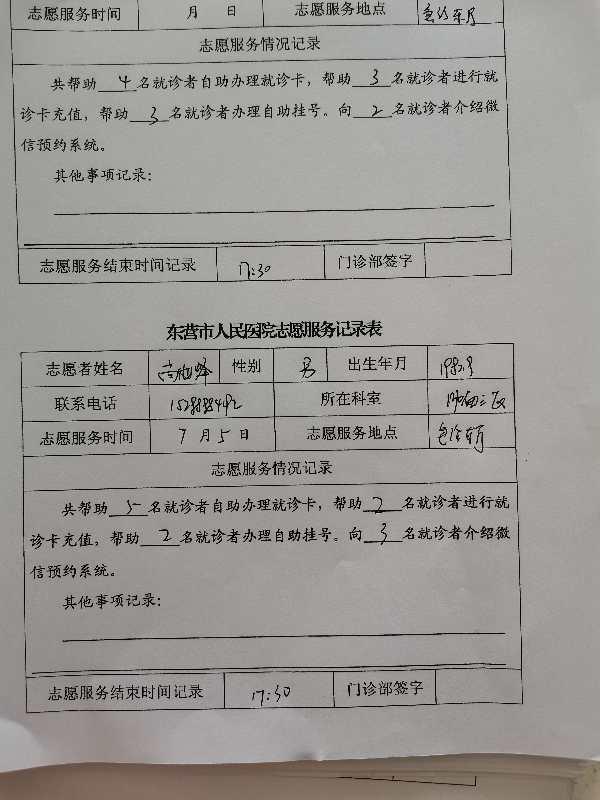 志愿服务时间 月 日 志愿服务地点
志愿服务情况记录
共帮助 4 名就诊者自助办理就诊卡，帮助 3 名就诊者进行就
诊卡充值，帮助 3 名就诊者办理自助挂号。向 2 名就诊者介绍微
信预约系统。
其他事项记录：
志愿服务结束时间记录 17:30 门诊部签字
东营市人民医院志愿服务记录表
志愿者姓名 性别 男 出生年月
联系电话 所在科室
志愿服务时间 7 月 5 日 志愿服务地点
志愿服务情况记录
共帮助 5 名就诊者自助办理就诊卡，帮助 2 名就诊者进行就
诊卡充值，帮助 2 名就诊者办理自助挂号。向 3 名就诊者介绍微
信预约系统。
其他事项记录：
志愿服务结束时间记录 17:30 门诊部签字